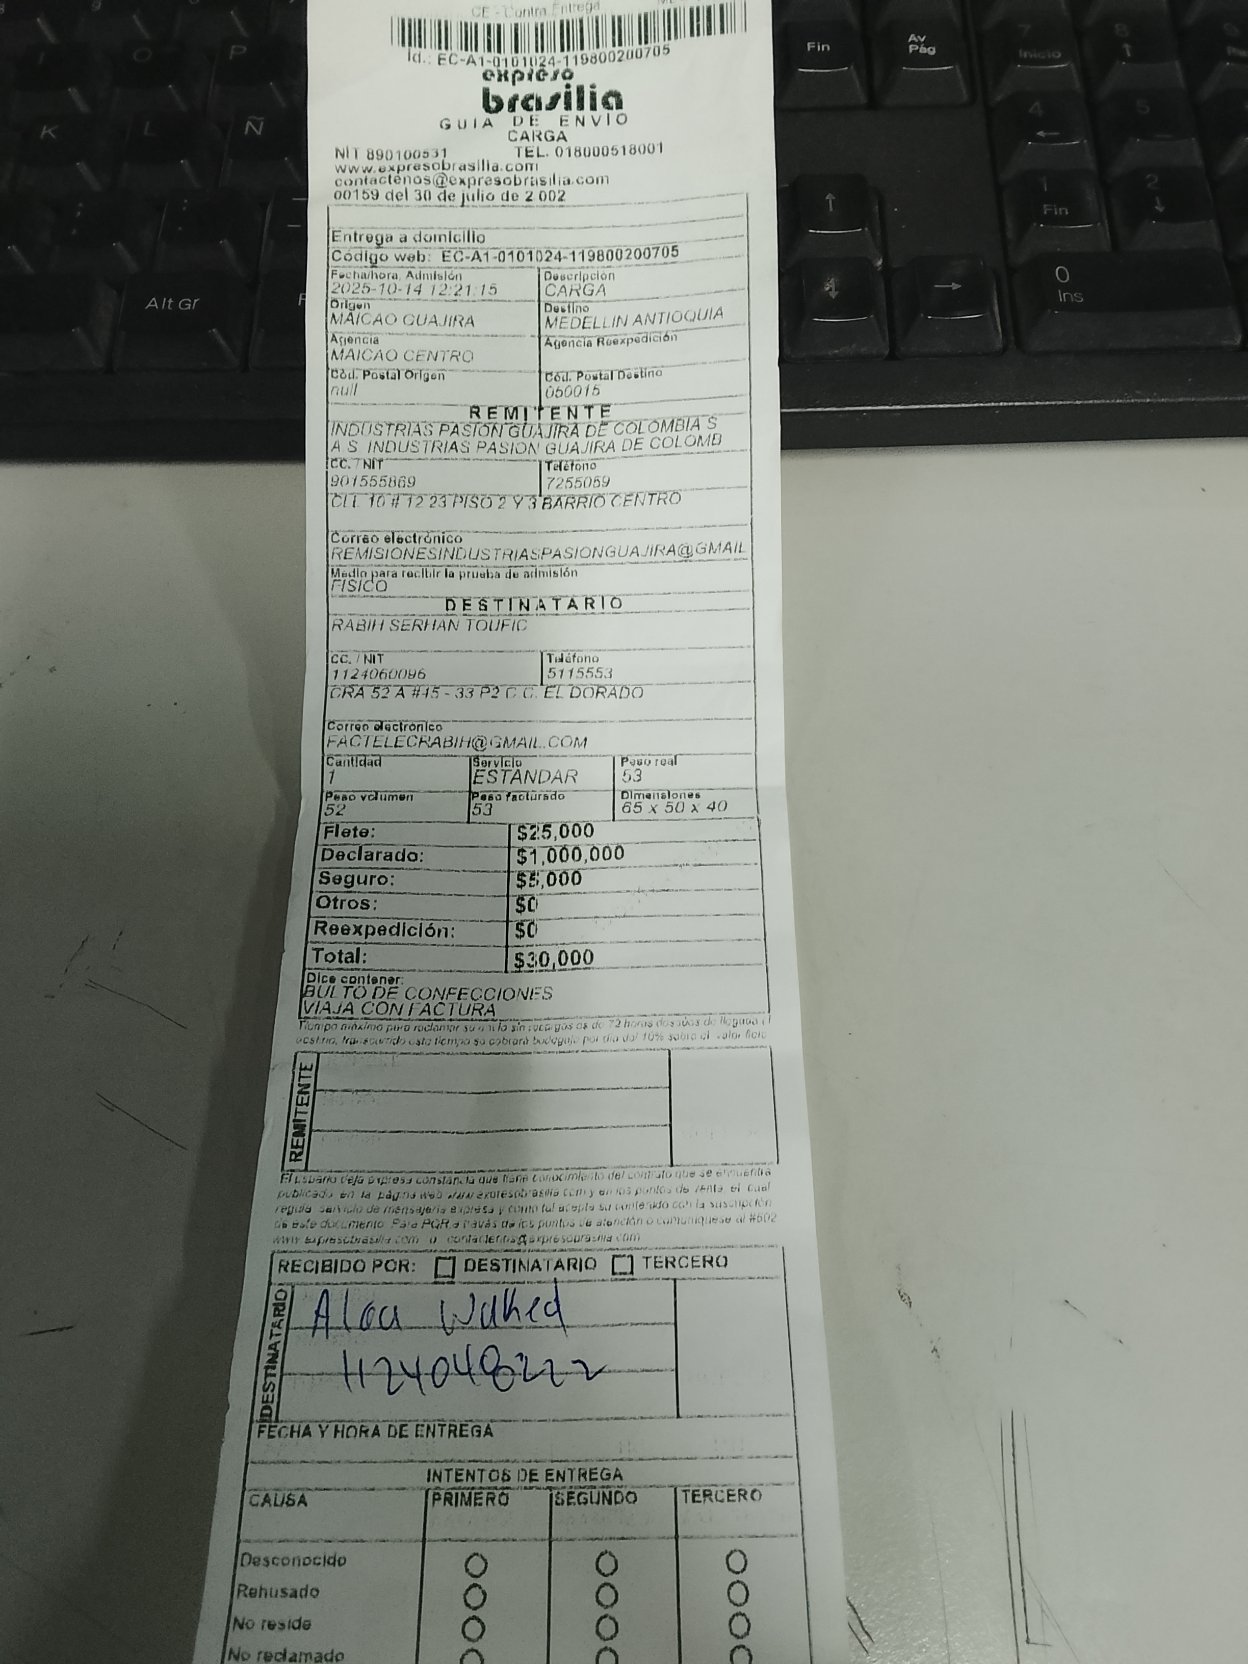 CE - Contra Entrega
Id.: EC-A1-0101024-119800200705
expreso
brasilia
GUIA DE ENVIO
CARGA
NIT 890100531 TEL. 018000518001
www.expresobrasilia.com
contactenos@expresobrasilia.com
00159 del 30 de julio de 2 002
Entrega a domicilio
Código web: EC-A1-0101024-119800200705
Fecha/hora. Admisión Descripción
2025-10-14 12:21:15 CARGA
Origen Destino
MAICAO GUAJIRA MEDELLIN ANTIOQUIA
Agencia Agencia Reexpedición
MAICAO CENTRO
Cód. Postal Origen Cód. Postal Destino
null 050015
REMITENTE
INDUSTRIAS PASION GUAJIRA DE COLOMBIA S
A S INDUSTRIAS PASION GUAJIRA DE COLOMB
CC. / NIT Teléfono
901555869 7255059
CLL 10 # 12 23 PISO 2 Y 3 BARRIO CENTRO
Correo electrónico
REMISIONESINDUSTRIASPASIONGUAJIRA@GMAIL
Medio para recibir la prueba de admisión
FISICO
DESTINATARIO
RABIH SERHAN TOUFIC
CC. / NIT Teléfono
1124060096 5115553
CRA 52 A #45 - 33 P2 C.C. EL DORADO
Correo electrónico
FACTELECRABIH@GMAIL.COM
Cantidad Servicio Peso real
1 ESTANDAR 53
Peso volumen Peso facturado Dimensiones
52 53 65 x 50 x 40
Flete: $25,000
Declarado: $1,000,000
Seguro: $5,000
Otros: $0
Reexpedición: $0
Total: $30,000
Dice contener:
BULTO DE CONFECCIONES
VIAJA CON FACTURA
Tiempo máximo para reclamar su envío sin recargos es de 72 horas después de llegada al
destino, transcurrido este tiempo se cobrará bodegaje por día del 10% sobre el valor flete
REMITENTE
El usuario deja expresa constancia que tiene conocimiento del contrato que se encuentra
publicado en la página web www.expresobrasilia.com y en los puntos de venta, el cual
regula servicio de mensajería expresa y como tal acepta su contenido con la suscripción
de este documento. Para PQR a través de los puntos de atención o comuníquese al #502
www.expresobrasilia.com o contactenos@expresobrasilia.com
RECIBIDO POR: DESTINATARIO TERCERO
DESTINATARIO
Alaa Walked
1124048222
FECHA Y HORA DE ENTREGA
INTENTOS DE ENTREGA
CAUSA PRIMERO SEGUNDO TERCERO
Desconocido
Rehusado
No reside
No reclamado
O
P
K
L
Ñ
Alt Gr
Fin
Av
Pág
7
Inicio
8
4
5
1
Fin
2
0
Ins